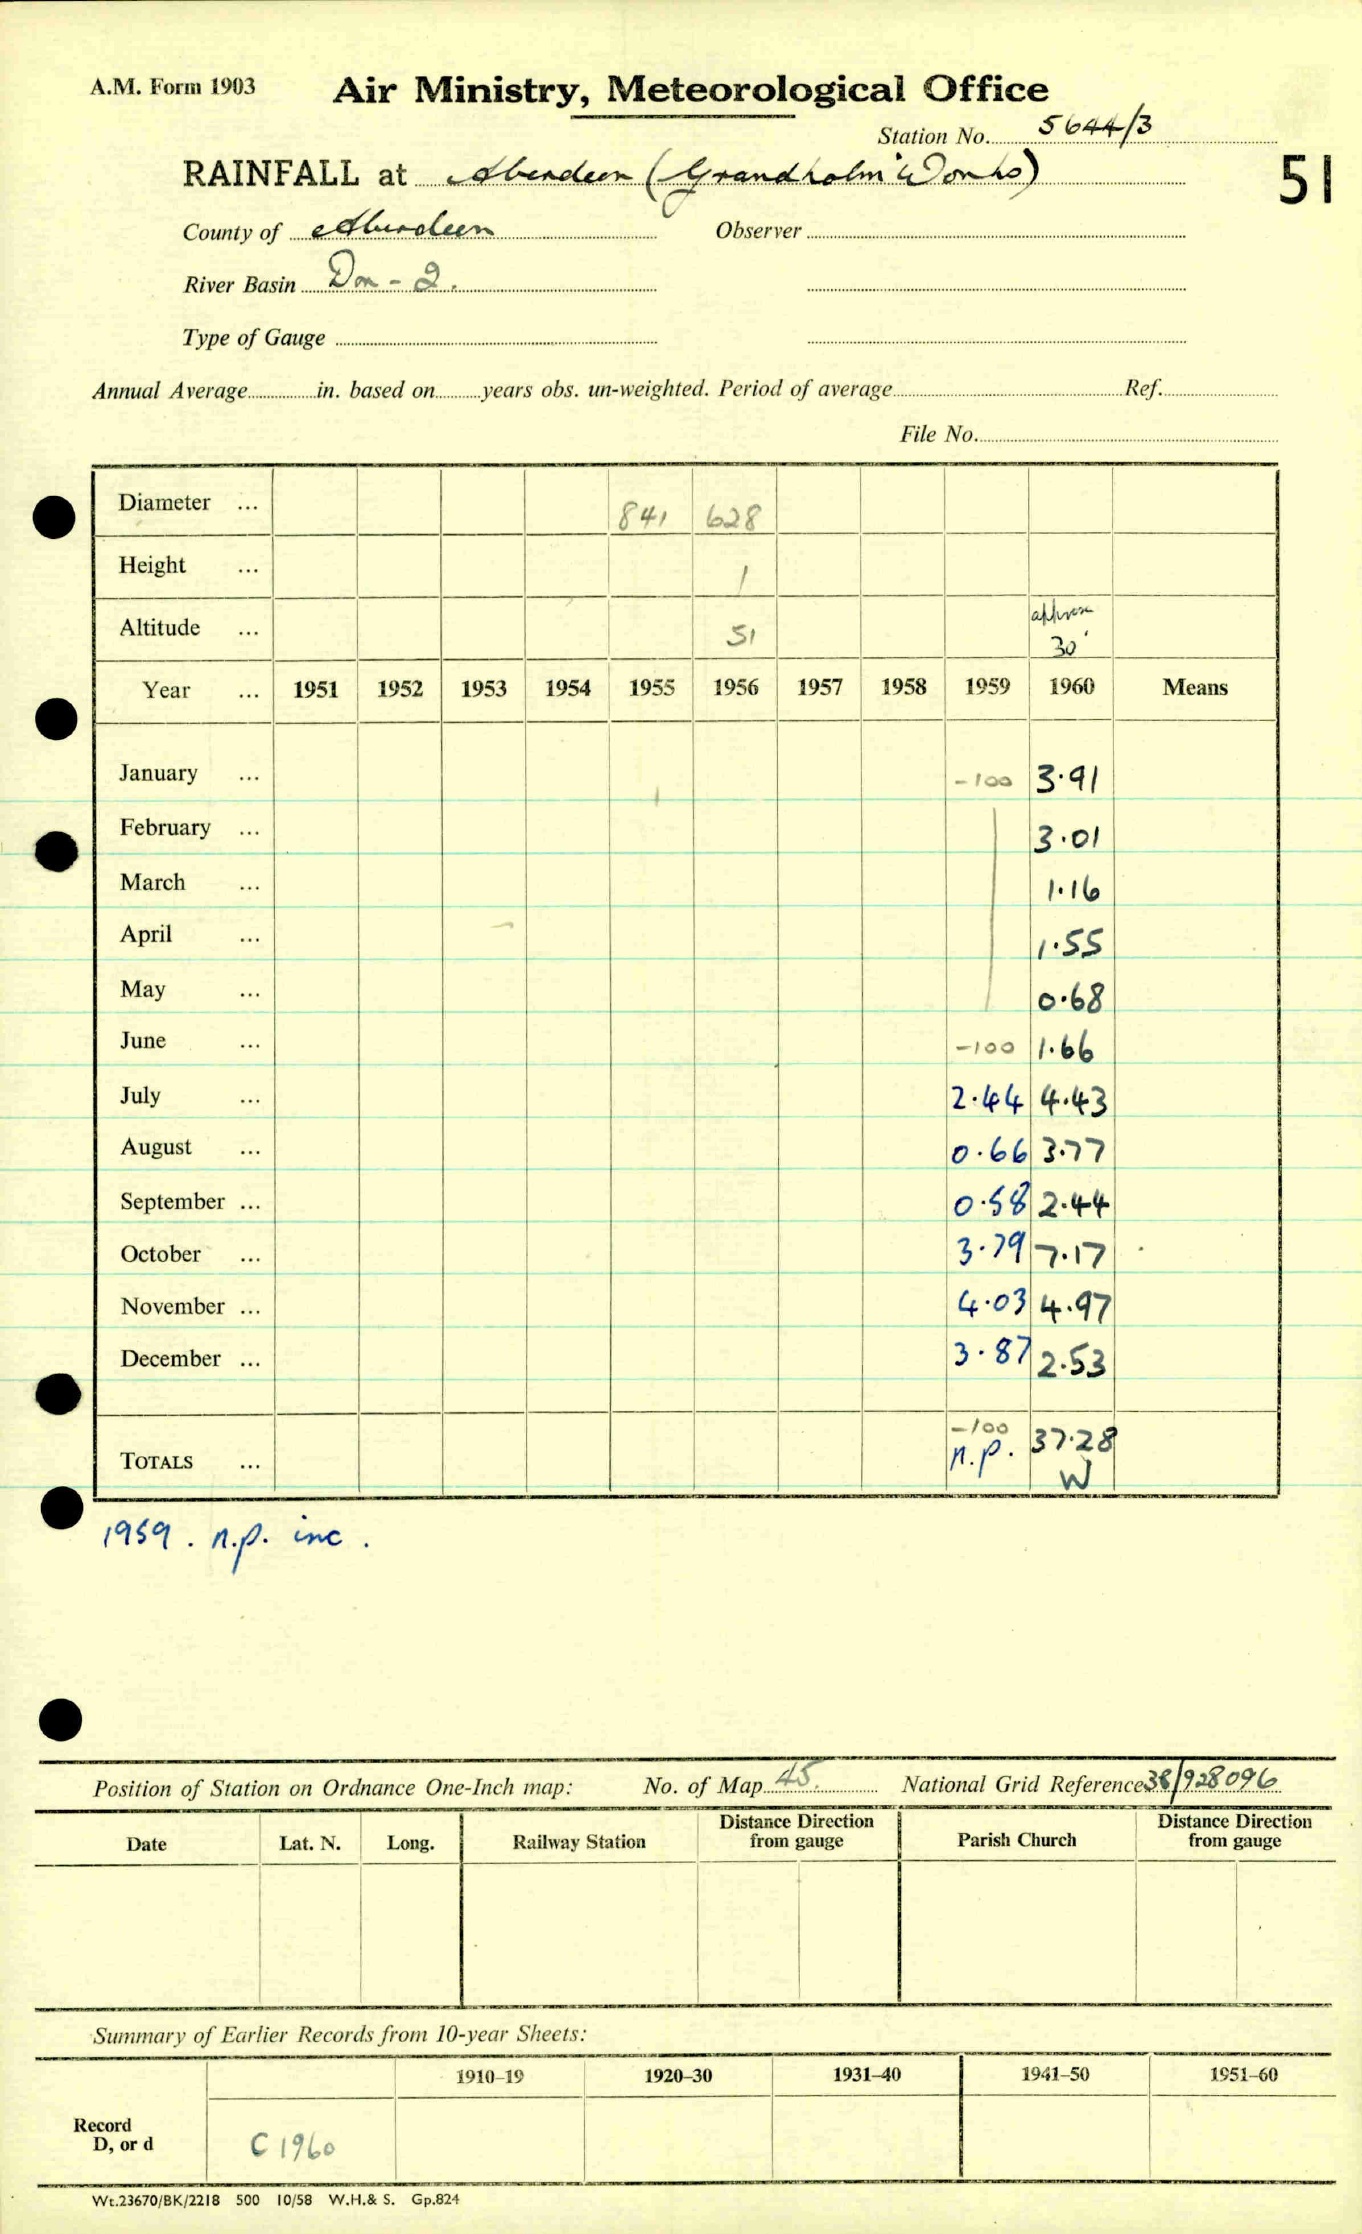 A.M. Form 1903 Air Ministry, Meteorological Office
Station No. 5644/3
RAINFALL at Aberdeen (Grandholm Works) 51
County of Aberdeen Observer
River Basin Don - 2.
Type of Gauge
Annual Average in. based on years obs. un-weighted. Period of average Ref.
File No.
Diameter ... 841 628
Height ... 1
Altitude ... 51 approx 30'
Year ... 1951 1952 1953 1954 1955 1956 1957 1958 1959 1960 Means
January ... -100 3.91
February ... 3.01
March ... 1.16
April ... 1.55
May ... 0.68
June ... -100 1.66
July ... 2.44 4.43
August ... 0.66 3.77
September ... 0.58 2.44
October ... 3.79 7.17
November ... 4.03 4.97
December ... 3.87 2.53
-100
TOTALS ... n.p. 37.28
W
1959 . n.p. inc .
Position of Station on Ordnance One-Inch map: No. of Map 45. National Grid Reference 38/928096
Date Lat. N. Long. Railway Station Distance Direction from gauge Parish Church Distance Direction from gauge
Summary of Earlier Records from 10-year Sheets:
1910-19 1920-30 1931-40 1941-50 1951-60
Record
D, or d C 1960
Wt.23670/BK/2218 500 10/58 W.H.& S. Gp.824